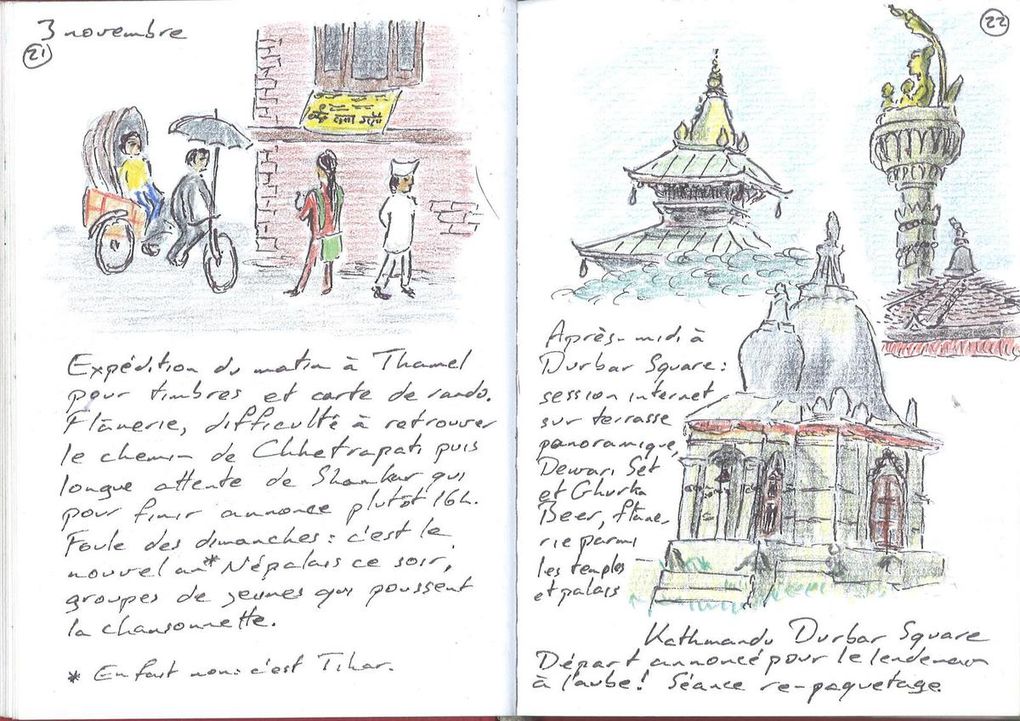 3 novembre
21
Expédition du matin à Thamel
pour timbres et carte de rando.
Flânerie, difficulté à retrouver
le chemin de Chhetrapati puis
longue attente de Shankar qui
pour finir annonce plutôt 16h.
Foule des dimanches : c'est le
nouvel an* Népalais ce soir,
groupes de jeunes qui poussent
la chansonnette.
* En fait non : c'est Tihar.
22
Après-midi à
Durbar Square :
session internet
sur terrasse
panoramique,
Dewari Set
et Ghurka
Beer, flâne-
rie parmi
les temples
et palais
Kathmandu Durbar Square
Départ annoncé pour le lendemain
à l'aube ! Séance re-paquetage.